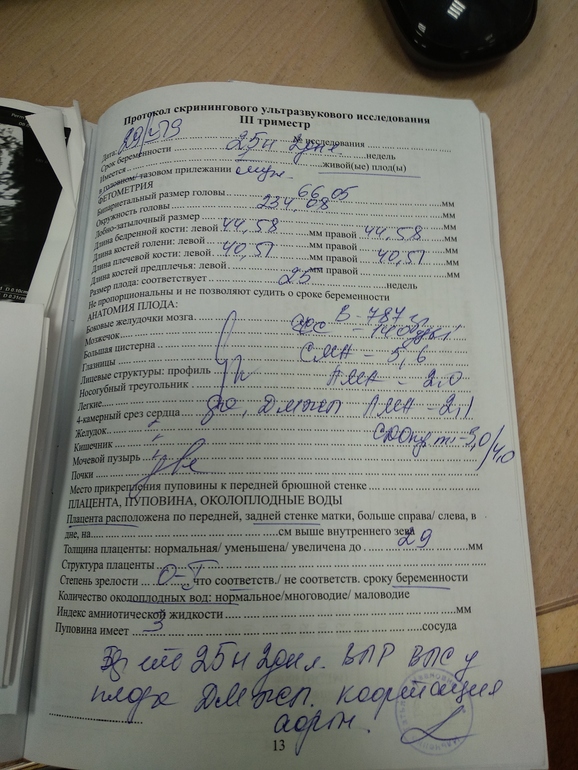 Протокол скринингового ультразвукового исследования
III триместр
Дата: 29/ исследования
Срок беременности 25н 2дня неделю
Имеется живой(ые) плод(ы)
в головном/ тазовом прилежании
ФЕТОМЕТРИЯ
Бипариетальный размер головы 66,05 мм
Окружность головы 234,08 мм
Лобно-затылочный размер мм
Длина бедренной кости: левой 44,58 мм правой 44,58 мм
Длина костей голени: левой мм правой мм
Длина плечевой кости: левой 40,51 мм правой 40,51 мм
Длина костей предплечья: левой мм правой мм
Размер плода: соответствует 25 недель
Не пропорциональны и не позволяют судить о сроке беременности
АНАТОМИЯ ПЛОДА:
Боковые желудочки мозга В - 787г
Мозжечок
Большая цистерна СМА - 3,6
Глазницы
Лицевые структуры: профиль АМА - 2,0
Носогубный треугольник
Легкие
4-камерный срез сердца ДМЖП ЛМА - 2,1
Желудок
Кишечник 3,0/4,0
Мочевой пузырь
Почки две
Место прикрепления пуповины к передней брюшной стенке
ПЛАЦЕНТА, ПУПОВИНА, ОКОЛОПЛОДНЫЕ ВОДЫ
Плацента расположена по передней, задней стенке матки, больше справа/ слева, в
дне, на см выше внутреннего зева
Толщина плаценты: нормальная/ уменьшена/ увеличена до 29 мм
Структура плаценты
Степень зрелости 0-I что соответств./ не соответств. сроку беременности
Количество околоплодных вод: нормальное/многоводие/ маловодие
Индекс амниотической жидкости мм
Пуповина имеет 3 сосуда
25н 2дня. ВПР ВПС у
плода ДМЖП. коарктация
аорты.
13